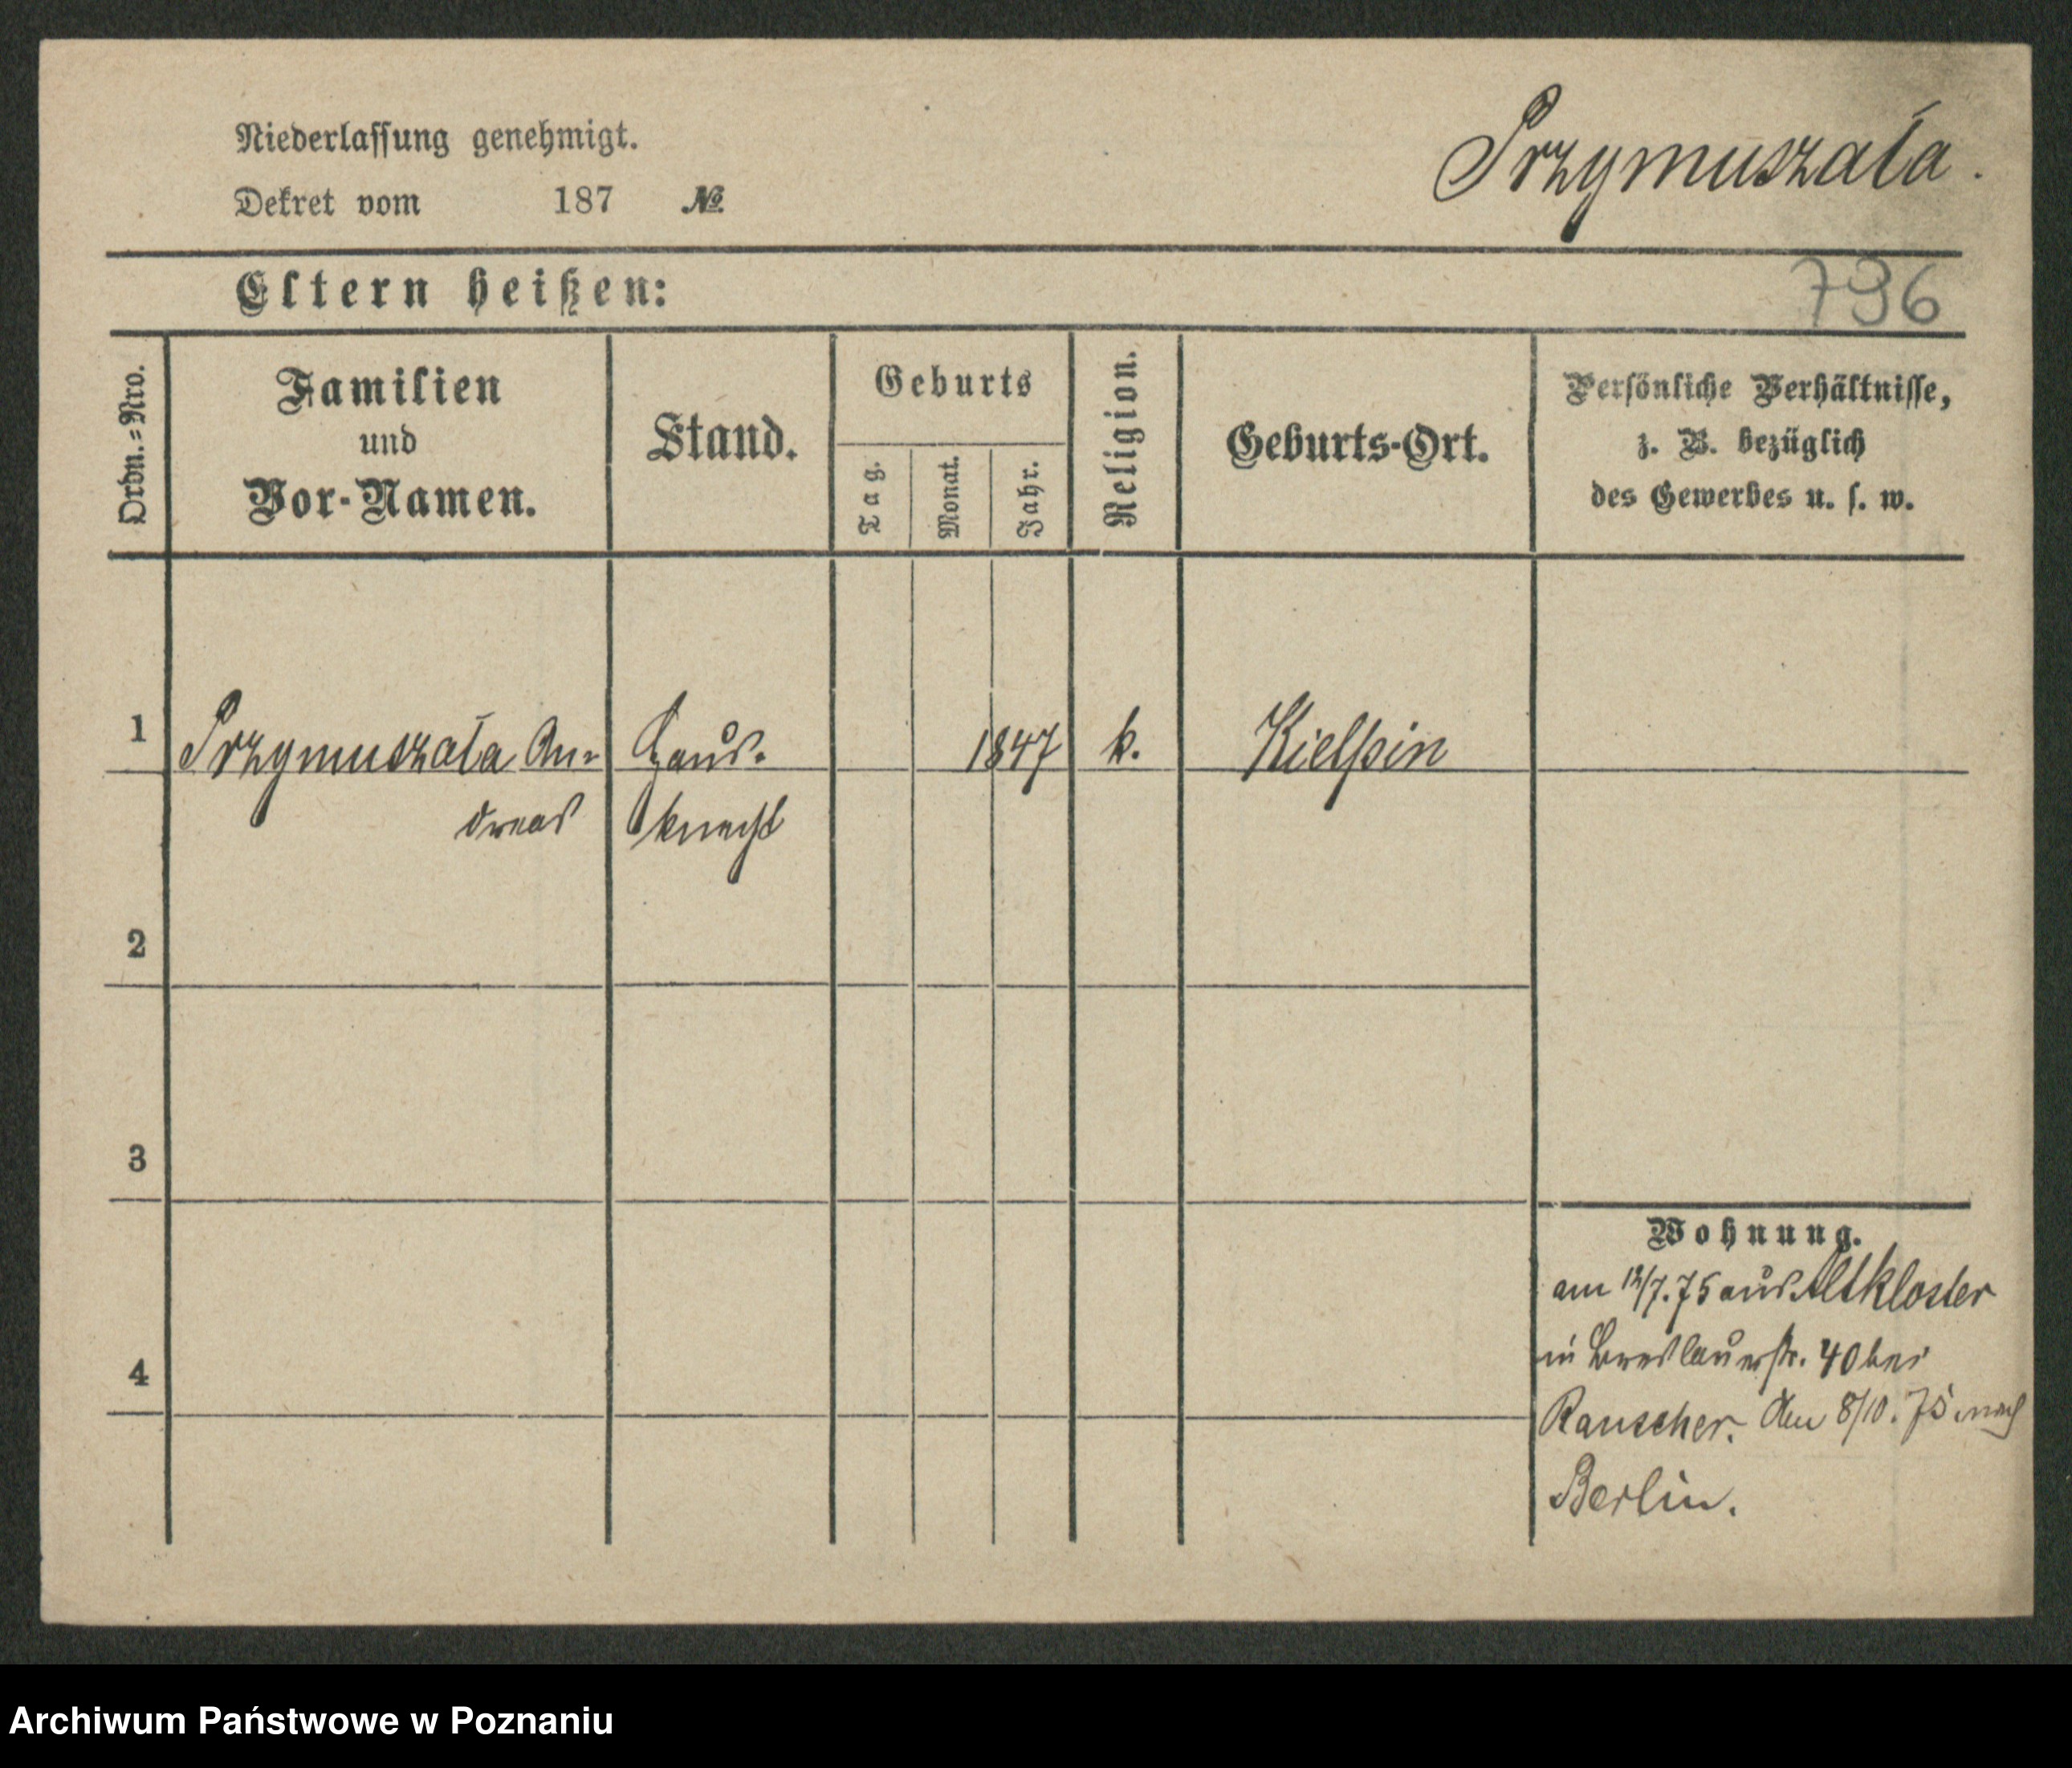 Niederlassung genehmigt.
Dekret vom 187 №
Przymuszała.
Eltern heißen:
796
Ordn.=Nro.
Familien
und
Vor-Namen.
Stand.
Geburts
Tag.
Monat.
Jahr.
Religion.
Geburts-Ort.
Persönliche Verhältnisse,
z. B. bezüglich
des Gewerbes u. s. w.
1 Przymuszała An- Haus- 1847 k. Kielpin
dreas knecht
2
3
4
Wohnung.
am 12/7.75 aus Altkloster
in Breslauerstr. 40 bei
Rauscher. Den 8/10.75 nach
Berlin.
Archiwum Państwowe w Poznaniu